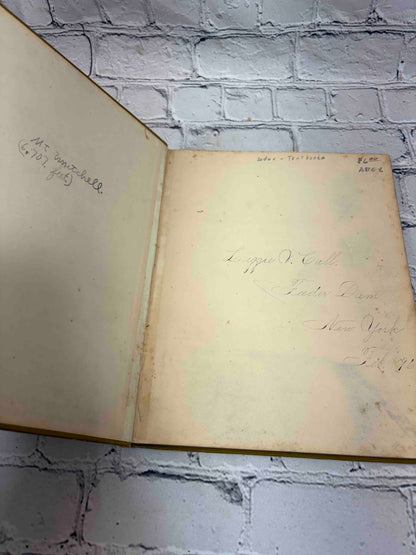 Mt. Mitchell.
(6,707 feet)
Educ - Textbooks
Lizzie V. Call.
Feeder Dam
New York
Feb